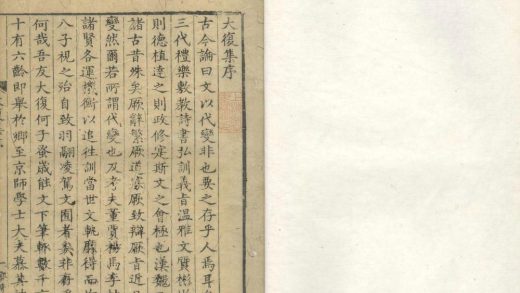 大復集序
古今論曰文以代變非也要之存乎人焉耳
三代禮樂敷教詩書弘訓義旨溫雅文質彬
則德植達之則政修寔斯文之會極也漢魏
諸古昔殊矣厥辭繁厥道寡厥致辯厥旨近
變然爾若所謂代變也及考夫董賈楊馬李
諸賢各運機衡以追往訓當世文軌靡得而
八子視之殆自致羽翮凌駕文囿者矣非
何哉吾友大復何子蚤歲能文下筆輒數千
十有六齡即舉於鄉至京師學士大夫慕其